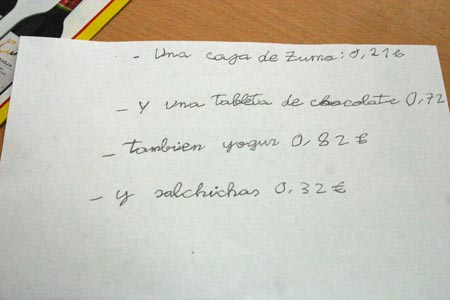 - Una caja de zumo: 0,21€
- Y una tableta de chocolate 0,72
- tambien yogur 0,82€
- y salchichas 0,32€